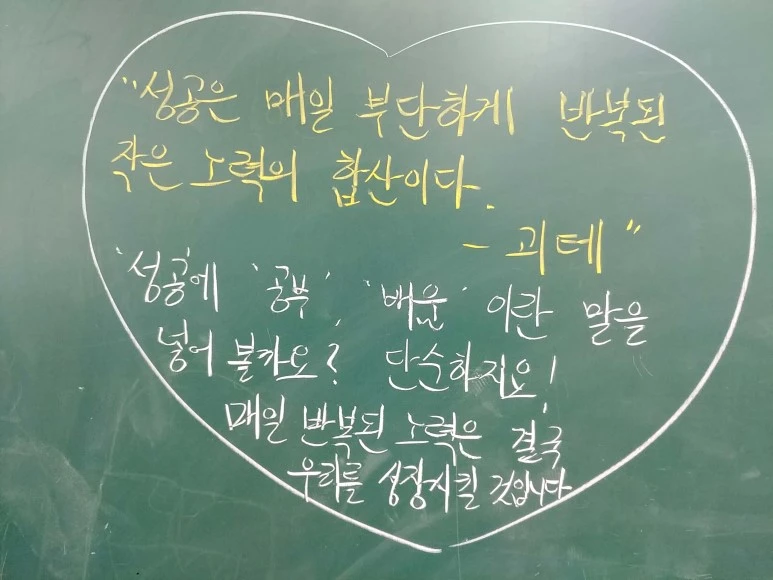 "성공은 매일 부단하게 반복된
작은 노력의 합산이다.
- 괴테"
'성공'에 '공부', '배움' 이란 말을
넣어 볼까요? 단순하지요!
매일 반복된 노력은 결국
우리를 성장시킬 것입니다